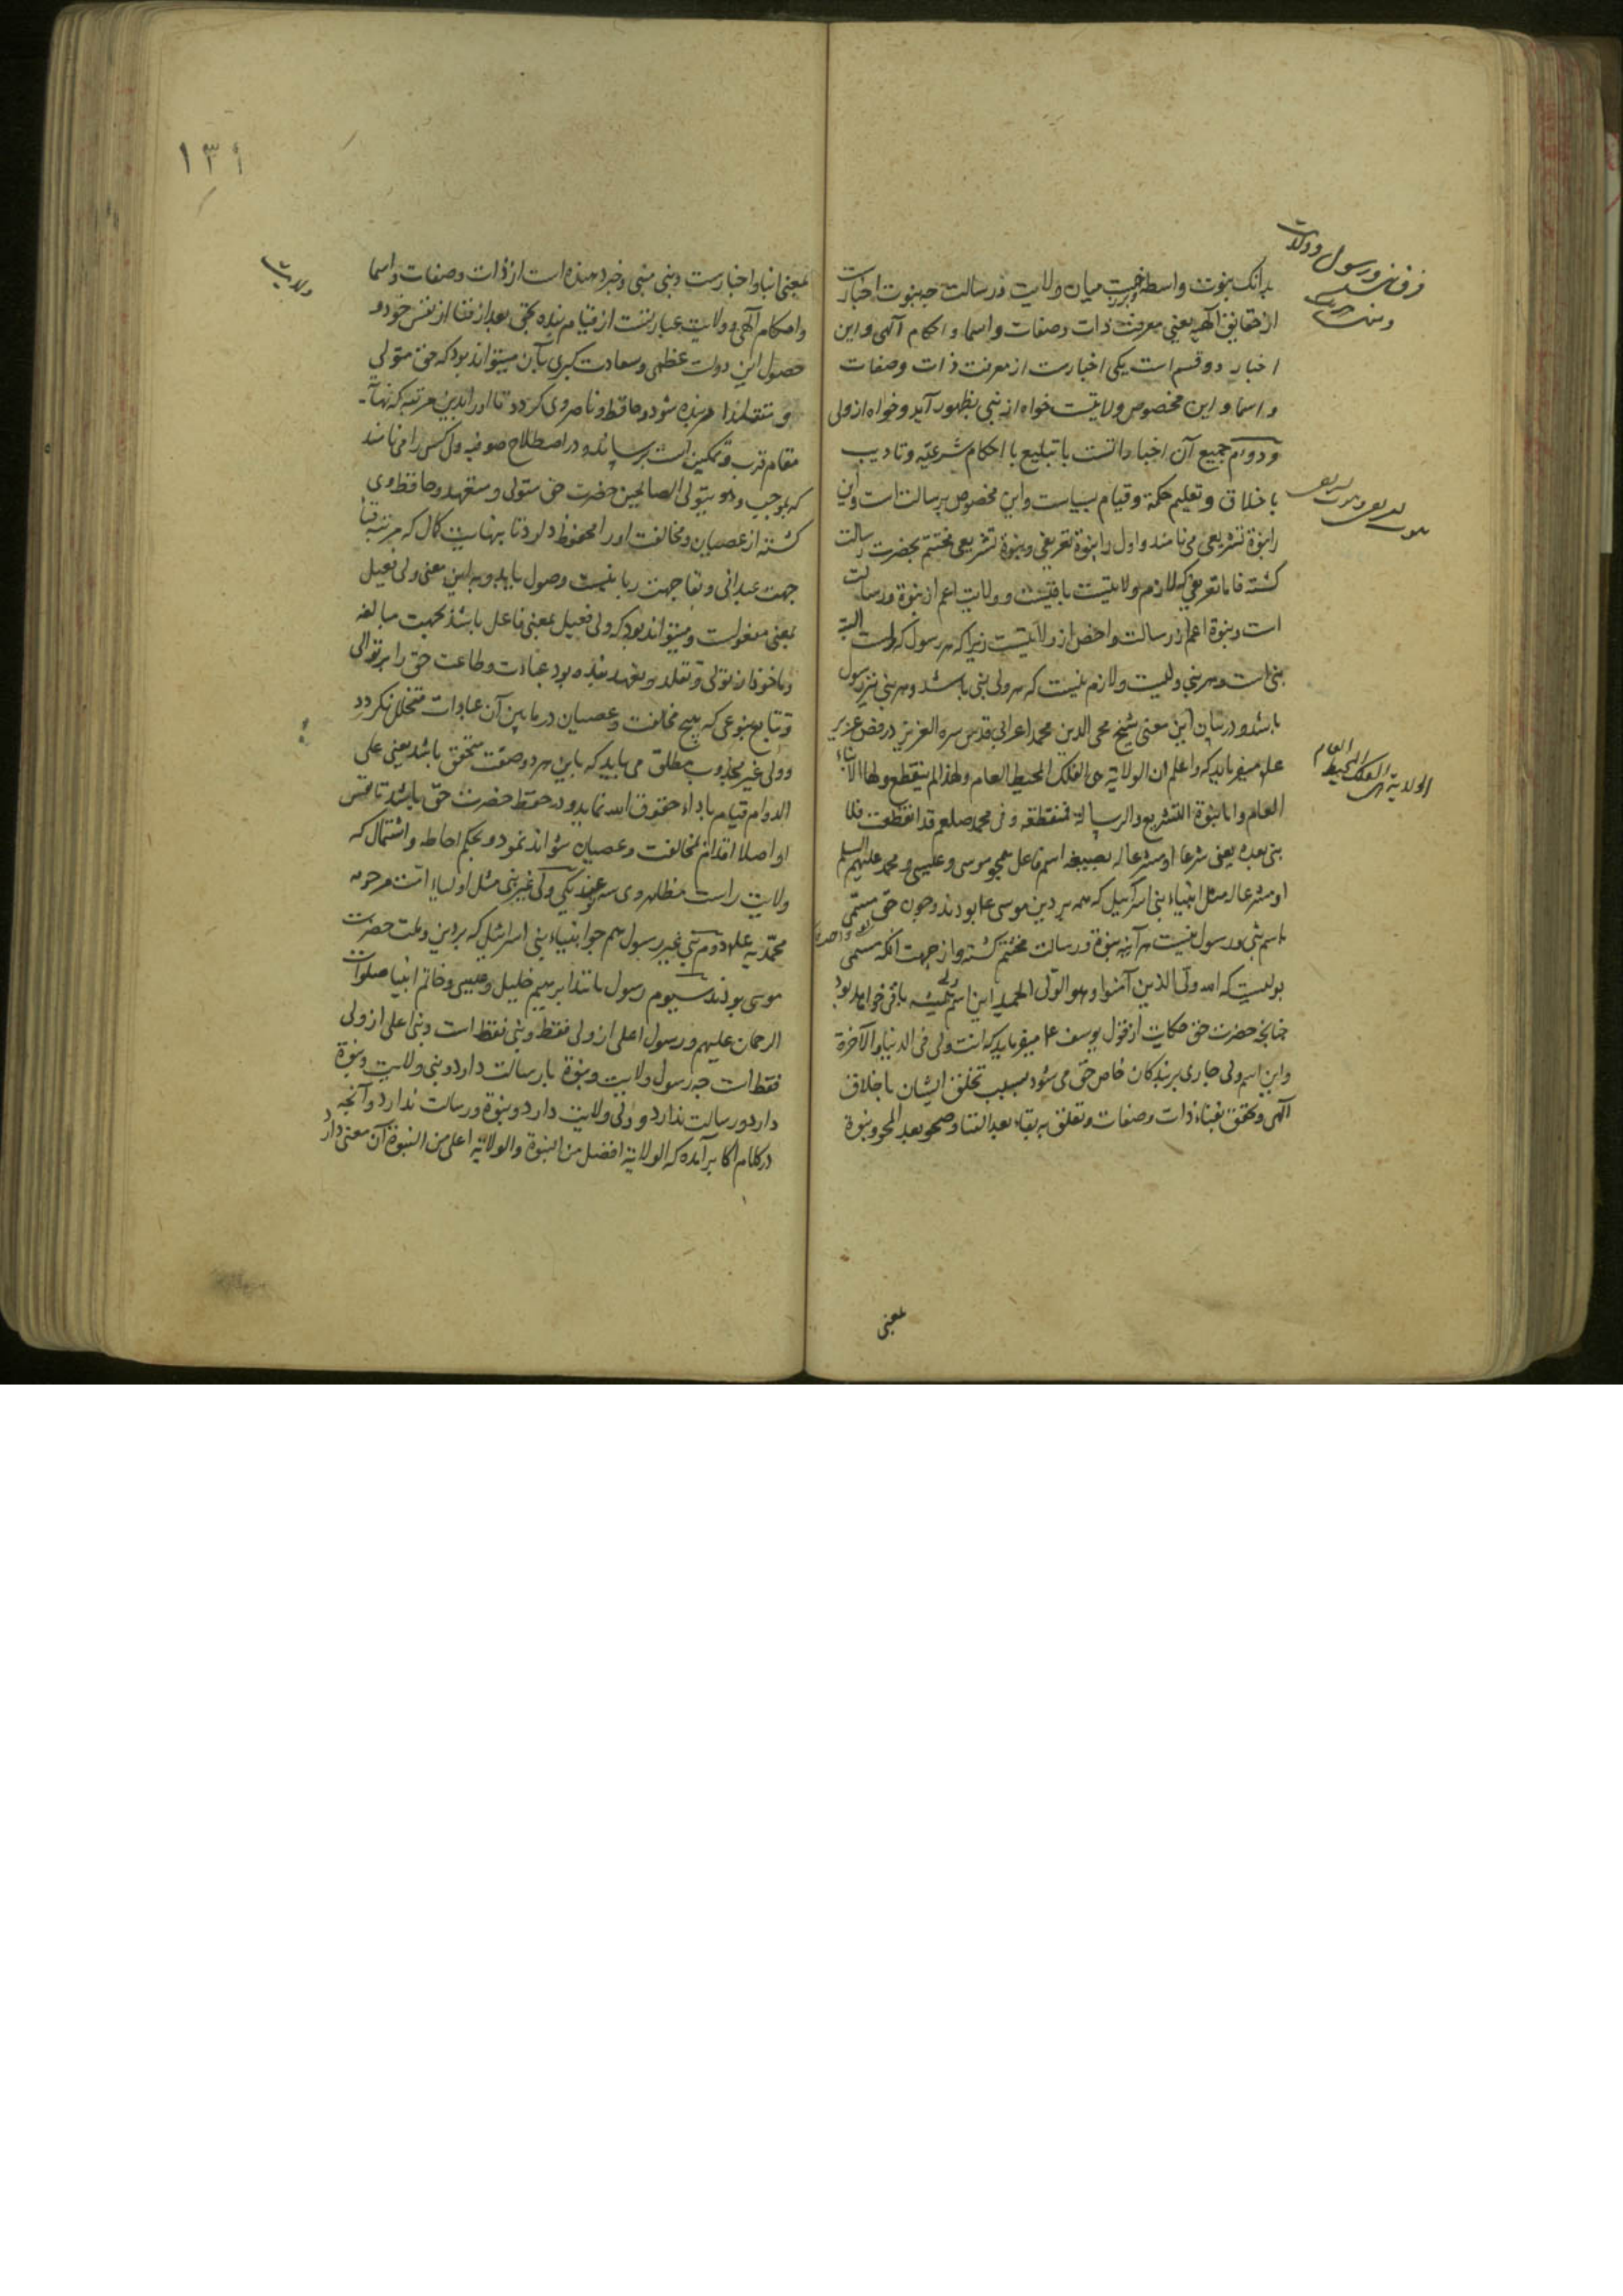 بدانک نبوت واسطه میان ولایت و رسالت چه نبوت اخبارست
از حقایق الهیه یعنی معرفت ذات و صفات و اسما و احکام الهی و این
اخبار دو قسم است یکی اخبارست از معرفت ذات و صفات
و اسما و این مخصوص ولایتست خواه از نبی بظهور آید و خواه از ولی
و دوم جمیع آن اخبارات با تبلیغ احکام شرعیه و تادیب
باخلاق و تعلیم حکمة و قیام بسیاست و این مخصوص برسالت است و این
را نبوة تشریعی می نامند و اول را نبوة تعریفی و نبوة تشریعی مختتم بحضرت رسالت
کشته فاما تعریفی که لازم ولایتست باقیست و ولایت اعم از نبوة و رسالت
است و نبوة اعم از رسالت و اخص از ولایتست زیرا که هر رسول که هست البته
نبی است و هر نبی ولیست و لازم نیست که هر ولی نبی باشد و هر نبی نیز رسول
باشد و در بیان این معنی شیخ محی الدین محمد اعرابی قدس سره العزیز در فص عزیر
علم میفرماید که واعلم ان الولایة هی الفلک المحیط العام ولهذا لم ینقطع ولها الانباء
العام واما نبوة التشریع والرسالة فمنقطعة وفی محمد صلعم قد انقطعت فلا
نبی بعده یعنی مشرعا او مشرعا له بصیغه اسم فاعل همچو موسی و عیسی و محمد علیهم السلم
او مشرعا له مثل انبیاء بنی اسرائیل که همه بر دین موسی عا بودند و چون حق مسمی
باسم نبی و رسول نیست هر آینه نبوة و رسالت مختتم کشته و از جهت انکه مسمی
بولیست که الله ولی الذین آمنوا و هو الولی الحمید این اسم همیشه باقی خواهد بود
چنانچه حضرت حق حکایت از قول یوسف عا میفرماید که انت ولی فی الدنیا والآخرة
و این اسم ولی جاری بر بندکان خاص حق می شود بسبب تخلق ایشان باخلاق
الهی و تحقق بفناء ذات و صفات و تعلق ببقاء بعد الفنا و صحو بعد المحو و نبوة
بمعنی
فرق نبی و رسول و ولایت
الولایة هی الفلک المحیط العام
۱۳۱
ولایت
بمعنی انبا و اخبارست و نبی منبی و خبر دهنده است از ذات و صفات و اسما
و احکام الهی و ولایت عبارتست از قیام بنده بحق بعد از فنا از نفس خود و
حصول این دولت عظمی و سعادت کبری بآن میتواند بود که حق متولی
و متقلد امر بنده شود و حافظ و ناصر وی کردد تا او را بدین مرتبه که نهایت
مقام قرب و تمکین است برساند و در اصطلاح صوفیه ولی کسی را می نامند
که بموجب و هو یتولی الصالحین حضرت حق متولی و متعهد و حافظ وی
کشته از عصیان و مخالفت او را محفوظ دارد تا بنهایت کمال که مرتبه فنا
جهت عبدانی و بقا جهت ربانیست وصول یابد و به این معنی ولی فعیل
بمعنی مفعولست و میتواند بود که ولی فعیل بمعنی فاعل باشد بجهت مبالغه
و ماخوذ از تولی و تقلد و تعهد بنده بود عبادت و طاعت حق را بر توالی
و تتابع بنوعی که هیچ مخالفت و عصیان در مابین آن عبادات متخلل نکردد
و ولی غیر مجذوب مطلق می باید که باین هر دو صفت متحقق باشد یعنی علی
الدوام قیام باداء حقوق الله نماید و در حفظ حضرت حق باشد تا نفس
او اصلا اقدام بمخالفت و عصیان نتواند نمود و بحکم احاطه و اشتمال که
ولایت راست مظاهر وی سه نوعند یکی ولی غیر نبی مثل اولیاء امت مرحومه
محمدیه علم دوم نبی غیر رسول هم چو انبیاء بنی اسرائیل که بر دین و ملت حضرت
موسی بودند سیوم رسول مانند ابراهیم خلیل و عیسی و خاتم انبیا صلوات
الرحمان علیهم و رسول اعلی از ولی فقط و نبی فقط است و نبی اعلی از ولی
فقط است چه رسول ولایت و نبوة با رسالت دارد و نبی ولایت و نبوة
دارد و رسالت ندارد و ولی ولایت دارد و نبوة و رسالت ندارد و آنچه
در کلام اکابر آمده که الولایة افضل من النبوة والولایة اعلی من النبوة آن معنی دارد